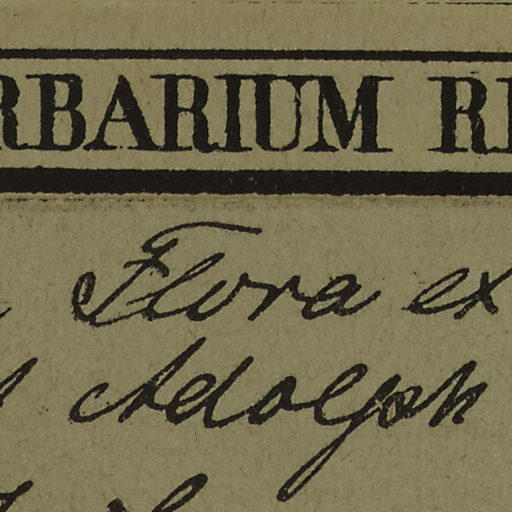 RBARIUM RE
Flora ex
Adolph